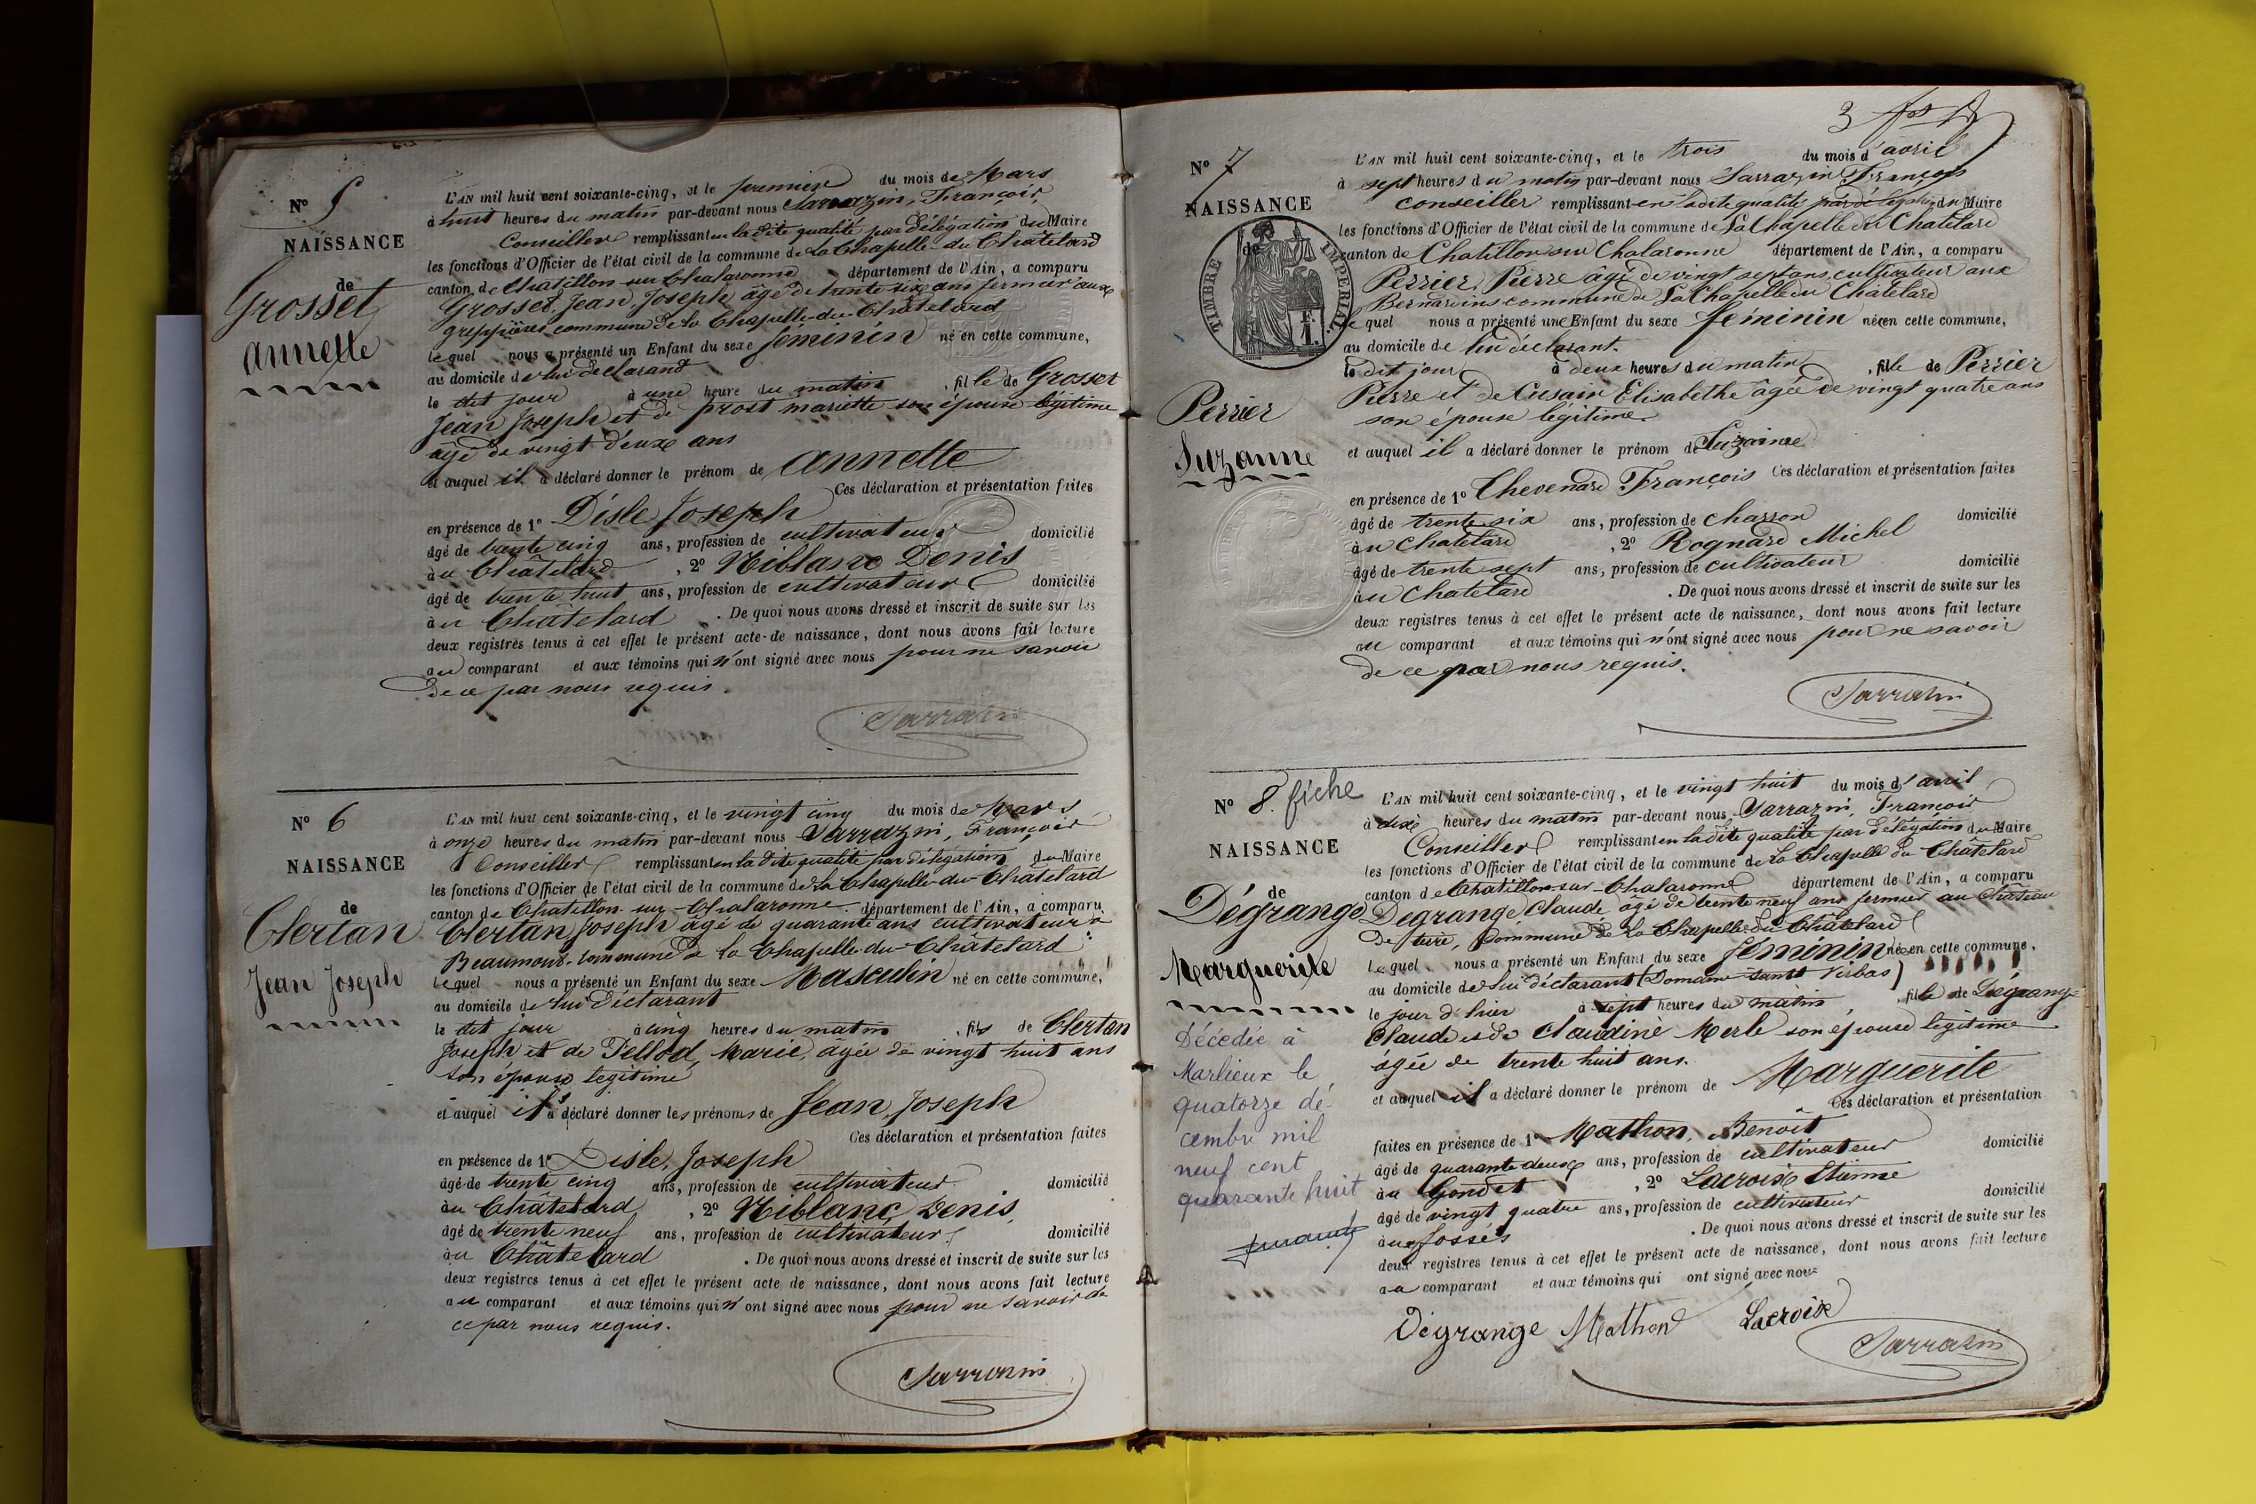 N° 5
NAISSANCE
de
Grosset
Annette
L'AN mil huit cent soixante-cinq, et le premier du mois de Mars
à huit heures du matin par-devant nous Sarrazin, François,
Conseiller remplissant en la dite qualité par délégation du Maire
les fonctions d'Officier de l'état civil de la commune de la Chapelle du Châtelard
canton de Chatillon sur Chalaronne département de l'Ain, a comparu
Grosset, Jean Joseph âgé de trente six ans fermier aux
commune de la Chapelle-du-Châtelard
lequel nous a présenté un Enfant du sexe féminin né en cette commune,
au domicile de lui declarant
le dit jour à une heure du matin, fille de Grosset
Jean Joseph et de prost mariette son épouse légitime
âgé de vingt deux ans
et auquel il a déclaré donner le prénom de Annette
Ces déclaration et présentation faites
en présence de 1° Disle Joseph
âgé de trente cinq ans, profession de cultivateur domicilié
au Châtelard, 2° Niblanc Denis
âgé de trente huit ans, profession de cultivateur domicilié
au Châtelard. De quoi nous avons dressé et inscrit de suite sur les
deux registres tenus à cet effet le présent acte de naissance, dont nous avons fait lecture
au comparant et aux témoins qui n'ont signé avec nous pour ne savoir
de ce par nous requis.
Sarrazin
N° 6
NAISSANCE
de
Clertan
Jean Joseph
L'AN mil huit cent soixante-cinq, et le vingt cinq du mois de Mars
à onze heures du matin par-devant nous Sarrazin, François
Conseiller remplissant en la dite qualité par délégation du Maire
les fonctions d'Officier de l'état civil de la commune de la Chapelle-du-Châtelard
canton de Chatillon-sur-Chalaronne département de l'Ain, a comparu
Clertan Joseph âgé de quarante ans cultivateur à
Beaumont commune de la Chapelle-du-Châtelard
lequel nous a présenté un Enfant du sexe Masculin né en cette commune,
au domicile de lui Déclarant
le dit jour à cinq heures du matin, fils de Clertan
Joseph et de Pellod, Marie, âgée de vingt huit ans
son épouse legitime
et auquel il a déclaré donner les prénoms de Jean, Joseph
Ces déclaration et présentation faites
en présence de 1° Disle, Joseph
âgé de trente cinq ans, profession de cultivateur domicilié
au Châtelard, 2° Niblanc Denis,
âgé de trente neuf ans, profession de cultivateur domicilié
au Châtelard. De quoi nous avons dressé et inscrit de suite sur les
deux registres tenus à cet effet le présent acte de naissance, dont nous avons fait lecture
au comparant et aux témoins qui n'ont signé avec nous pour ne savoir de
ce par nous requis.
Sarrazin
3
N° 7
NAISSANCE
de
TIMBRE IMPÉRIAL
Perrier
Suzanne
L'AN mil huit cent soixante-cinq, et le trois du mois d'avril
à sept heures du matin par-devant nous Sarrazin François
conseiller remplissant en ladite qualité par délégation du Maire
les fonctions d'Officier de l'état civil de la commune de La Chapelle du Chatelard
canton de Chatillon sur Chalaronne département de l'Ain, a comparu
Perrier, Pierre âgé de vingt sept ans, cultivateur aux
Bernardins commune de La Chapelle du Châtelard
lequel nous a présenté un Enfant du sexe féminin né en cette commune,
au domicile de lui déclarant.
le dit jour à deux heures du matin, fille de Perrier
Pierre et de Cusain Elisabethe âgée de vingt quatre ans
son épouse légitime.
et auquel il a déclaré donner le prénom de Suzanne
Ces déclaration et présentation faites
en présence de 1° Chevenard François
âgé de trente six ans, profession de charron domicilié
au Chatelard, 2° Rognard Michel
âgé de trente sept ans, profession de cultivateur domicilié
au Chatelard. De quoi nous avons dressé et inscrit de suite sur les
deux registres tenus à cet effet le présent acte de naissance, dont nous avons fait lecture
au comparant et aux témoins qui n'ont signé avec nous pour ne savoir
de ce par nous requis.
Sarrazin
N° 8. fiche
NAISSANCE
de
Dégrange
Marguerite
Décédée à
Marlieux le
quatorze dé-
cembre mil
neuf cent
quarante huit
L'AN mil huit cent soixante-cinq, et le vingt huit du mois d'avril
à dix heures du matin par-devant nous Sarrazin, François
Conseiller remplissant en la dite qualité par délégation du Maire
les fonctions d'Officier de l'état civil de la commune de La Chapelle du Châtelard
canton de Chatillon-sur-Chalaronne département de l'Ain, a comparu
Degrange, Claude âgé de trente neuf ans fermier au Château
commune de La Chapelle du Châtelard
lequel nous a présenté un Enfant du sexe féminin née en cette commune,
au domicile de lui déclarant (Domaine
le jour d'hier à sept heures du matin, fille de Dégrange
Claude et de Claudine Merle son épouse légitime
âgée de trente huit ans.
et auquel il a déclaré donner le prénom de Marguerite
Ces déclaration et présentation
faites en présence de 1° Mathon, Benoît
âgé de quarante deux ans, profession de cultivateur domicilié
au Gondet, 2° Lacroix Etienne
âgé de vingt quatre ans, profession de cultivateur domicilié
aux fossés. De quoi nous avons dressé et inscrit de suite sur les
deux registres tenus à cet effet le présent acte de naissance, dont nous avons fait lecture
au comparant et aux témoins qui ont signé avec nous
Dégrange Mathon Lacroix
Sarrazin